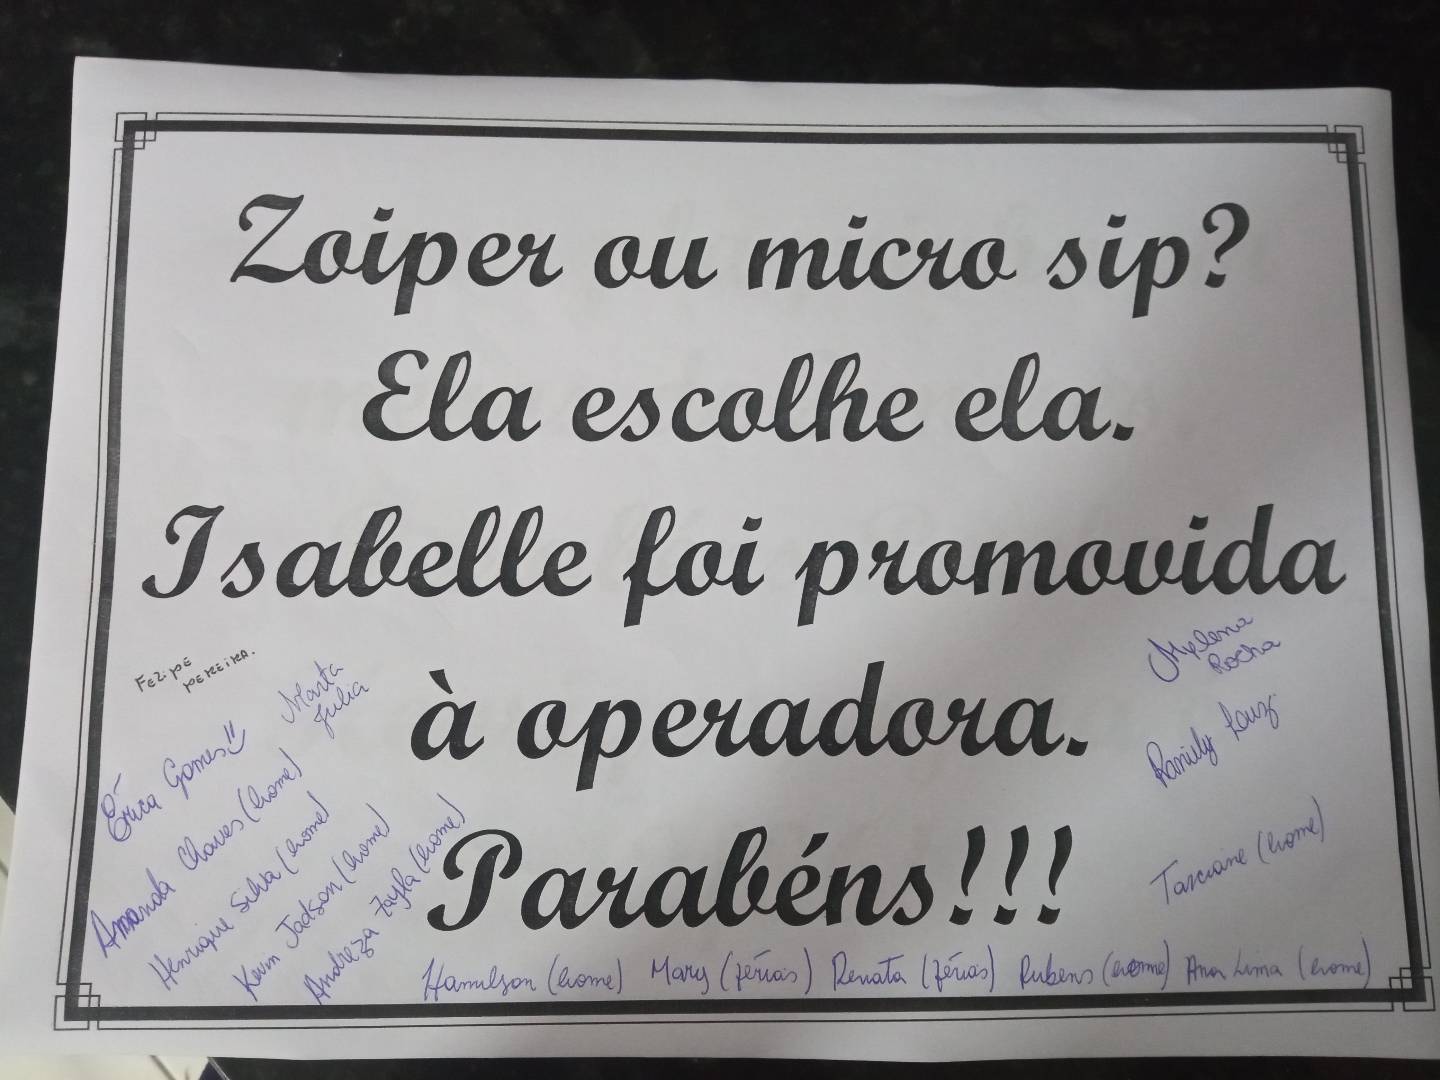 Zoiper ou micro sip?
Ela escolhe ela.
Isabelle foi promovida
à operadora.
Parabéns!!!
Felipe
Pereira.
Marta
Julia
Érica Gomes
Amanda Chaves (home)
Henrique Silva (home)
Kevin Jadson (home)
Andreza Zayla (home)
Mylena
Rocha
Raniely
Tarciane (home)
Hamilson (home) Mary (férias) Renata (férias) Rubens (home) Ana Lima (home)